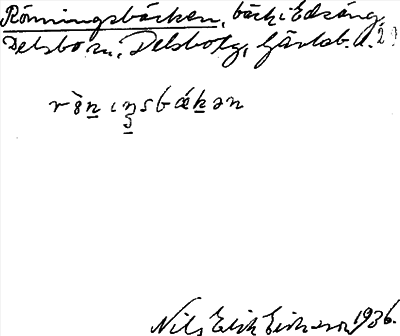 Rönningsbäcken, bäck i Edsäng,
Delsbo sn, Delsbo tg, Gävleb. l.
rö̀n ıŋsbákən
Nils Erik Eriksson 1936.